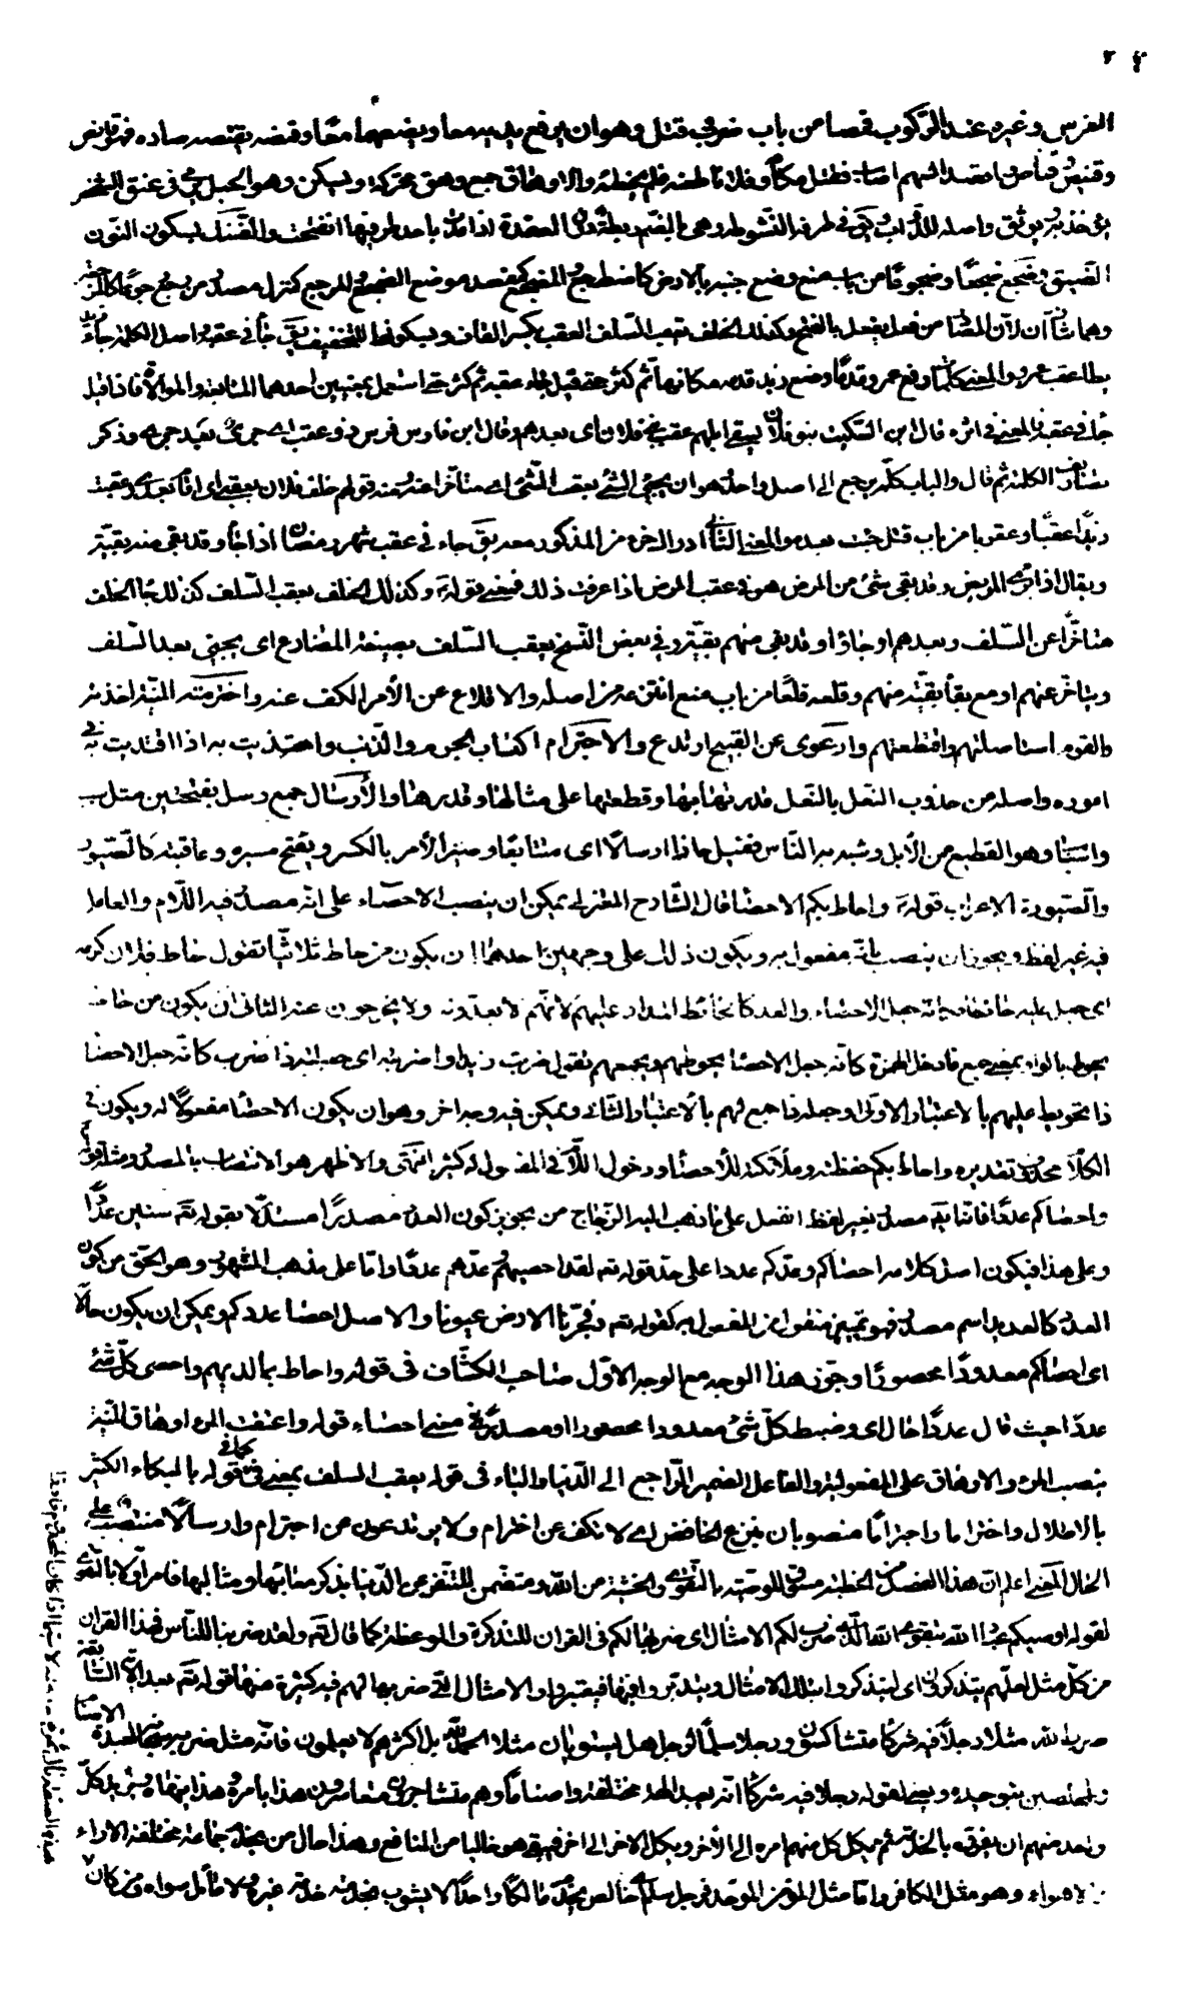 الفرس وغيره عند الركوب قمصا من باب ضرب وقتل وهو ان يرفع يديه معا ويضعهما معا وقنصه يقتصه صاده فهو قانص
وقنيص وقناص اقصد السهم اصاب فقتل مكانه وفلانا طعنه فلم يخطئه والاوهاق جمع وهق محركة ويسكن وهو الحبل يرمى في عنق الشخص
يؤخذ به ويوثق واصله للدواب في طرفه انشوطه وهى بالضم ربطة دون العقدة اذا مدت باحد طرفيها انفتحت والضنك بسكون النون
الضيق وضجع ضجعا وضجوعا من باب منع وضع جنبه بالارض كاضطجع والمضجع كمقصد موضع الضجوع المرجع كمنزل مصدر من رجع رجوعا
وهما شاذان لان المصدر من فعل يفعل بالفتح وكذلك الخلف بعقب السلف العقب بكسر القاف وبسكونها للتخفيف يق جاء في عقبه واصل الكلمة جاء زيد
يطأ عقب عمرو والمعنى كلما رفع عمرو قدما وضع زيد قدمه مكانها ثم كثر حتى قيل جاء عقبه ثم كثر حتى استعمل بمعنيين احدهما المتابعة والموالاة فاذا قيل
جاء في عقبه فالمعنى في اثره قال ابن السكيت بنو فلان يسقى ابلهم عقب بنى فلان اى بعدهم وقال ابن فارس فرس ذو عقب اى جرى بعد جرى وذكر
تصاريف الكلمة ثم قال والباب كله يرجع الى اصل واحد وهو ان يجىء الشىء بعقب الشىء اى متأخرا عنه ومنه قولهم خلف فلان بعقبى اى اقام بعدى وعقبت
زيدا عقبا وعقوبا من باب قتل جئت بعده والمعنى الثانى ادراك جزء من المذكور معه يق جاء في عقب شهر رمضان اذا جاء وقد بقى منه بقية
ويقال اذا برء المريض وقد بقى شىء من المرض هو في عقب المرض اذا عرفت ذلك فمعنى قوله وكذلك الخلف بعقب السلف كذلك جاء الخلف
متأخرا عن السلف وبعدهم او جاؤا وقد بقى منهم بقية وفي بعض النسخ يعقب السلف بصيغة المضارع اى يجيىء بعد السلف
ويتأخر عنهم او مع بقاء بقية منهم وقلعه قلعا من باب منع انتزعه من اصله والاقلاع عن الأمر الكف عنه واخترمته المنية اخذته
والقوم استاصلتهم واقتطعتهم وارعوى عن القبيح ارتدع والاجترام اكتساب الجرم والذنب واحتذيت به اذا اقتديت به في
اموره واصله من حذوت النعل بالنعل قدرتها بها وقطعتها على مثالها وقدرها والأرسال جمع رسل بفتحتين مثل سبب
واسباب وهو القطيع من الأبل وشبه به الناس فقيل جاؤا ارسالا اى متتابعا وصير الأمر بالكسر ويفتح مصيره وعاقبته كالصيور
والصيورة الاعراب قوله واحاط بكم الاحصاء قال الشارح المعتزلى يمكن ان ينصب الاحصاء على انه مصدر فيه اللام والعامل
فيه غير لفظه ويجوز ان ينصب بانه مفعول به ويكون ذلك على وجهين احدهما ان يكون من حاط ثلاثيا تقول حاط فلان كرمه
اى جعل عليه حائطا فكانه جعل الاحصاء والعد كالحائط المدار عليهم لانهم لا يعدونه ولا يخرجون عنه الثانى ان يكون من حاط
يحوط بالواو بمعنى جمع فادخل الهمزة كانه جعل الاحصاء يحوطهم ويجمعهم تقول ضربت زيدا واضربته اى جعلته ذا ضرب كانه جعل الاحصاء
ذا تحويط عليهم بالاعتبار الاول او جعله ذا جمع لهم بالاعتبار الثانى ويمكن فيه وجه اخر وهو ان يكون الاحصاء مفعولا له ويكون في
الكلام محذوف تقديره واحاط بكم حفظته وملائكته للأحصاء ودخول اللام في المفعول له كثير انتهى والاظهر هو الانتصاب بالمصدر ومثله قوله
واحصاكم عددا فانه مصدر بغير لفظ الفعل على ما ذهب اليه الزجاج من تجويز كون العدد مصدرا مستدلا بقوله تعه سنين عددا
وعلى هذا فيكون اصل كلامه احصاكم وعدكم عددا على حد قوله تعه لقد احصيهم وعدهم عدا واما على مذهب المشهور وهو الحق من كون
العدد كالعديد اسم مصدر فهو تمييز منقول من المفعول به كقوله تعه وفجرنا الارض عيونا والاصل احصا عددكم ويمكن ان يكون حالا
اى احصاكم معدودا محصورا وجوز هذا الوجه مع الوجه الاول صاحب الكشاف في قوله واحاط بما لديهم واحصى كل شىء
عددا حيث قال عددا حال اى وضبط كل شىء معدودا محصورا او مصدر في معنى احصاء قوله واعلقت المرء اوهاق المنية
بنصب المرء والاوهاق على المفعولية والفاعل الضمير الراجع الى الدنيا والباء في قوله بعقب السلف بمعنى في كما في قوله بالبكاء الكثير
بالاطلال واختراما واجتراما منصوبان بنزع الخافض اى لا تكف عن اخترام ولا يرتدعون من اجترام وارسالا منتصب على
الحال المعنى اعلم ان هذا الفصل من الخطبة مسوق للوصية بالتقوى والخشية من الله ومتضمن للتنفير عن الدنيا بذكر معايبها ومثالبها فامر اولا بالتقوى
لقوله اوصيكم عباد الله بتقوى الله الذى ضرب لكم الامثال اى ضربها لكم في القران للتذكرة والموعظة كما قال تعه ولقد ضربنا للناس في هذا القران
من كل مثل لعلهم يتذكرون اى ليتذكروا بتلك الامثال ويتدبروا فيها فيعتبروا والامثال التى ضربها لهم فيه كثيرة منها قوله تعه بعد الاية السابقة
ضرب الله مثلا رجلا فيه شركاء متشاكسون ورجلا سلما لرجل هل يستويان مثلا الحمد لله بل اكثرهم لا يعلمون فانه مثل ضربه لعبدة الاصنام
والمخلصين بتوحيده ويعنى بقوله رجلا فيه شركاء انه يعبد الهة مختلفة واصناما وهم متشاجرون متعاسرون هذا يأمره وهذا ينهاه ويريد كل
واحد منهم ان يفرده بالخدمة ثم يكل كل منهم امره الى الأخر ويكل الاخر الى اخر فيبقى هو خاليا من المنافع وهذا حال من يخدم جماعة مختلفة الاراء
والاهواء وهو مثل الكافر واما مثل المؤمن الموحد فرجل سلم خالص يخدم مالكا واحدا لا يشوب بخدمته خدمة غيره ولا يأمل سواه ومن كان